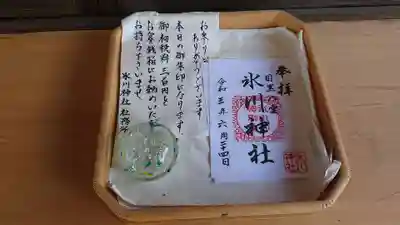 お参り
ありがとうございます
本日の御朱印になります。
御初穂料 三百円を
お賽銭箱にお納めいただき
お持ち下さいませ
氷川神社 社務所
奉拝
目黒
氷川神社
令和三年六月二十四日